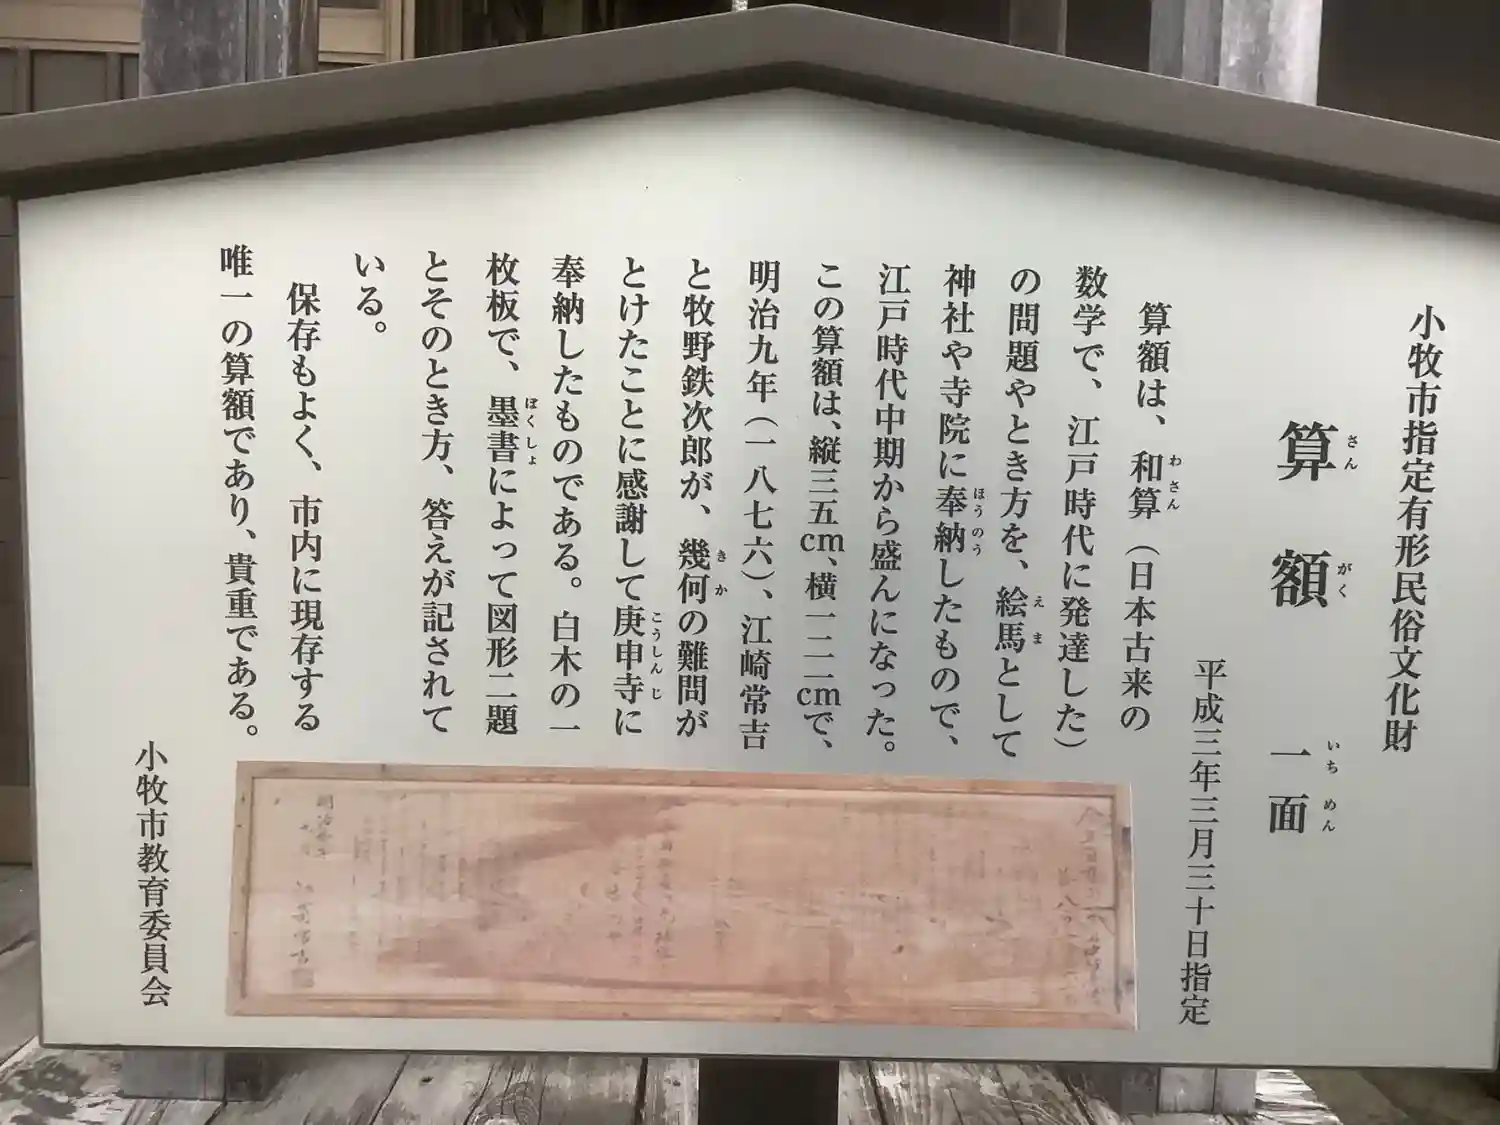 小牧市指定有形民俗文化財
算額 一面
さん がく いち めん
平成三年三月三十日指定
算額は、和算（日本古来の
わさん
数学で、江戸時代に発達した）
の問題やとき方を、絵馬として
えま
神社や寺院に奉納したもので、
ほうのう
江戸時代中期から盛んになった。
この算額は、縦三五cm、横一二二cmで、
明治九年（一八七六）、江崎常吉
と牧野鉄次郎が、幾何の難問が
きか
とけたことに感謝して庚申寺に
こうしんじ
奉納したものである。白木の一
枚板で、墨書によって図形二題
ぼくしょ
とそのとき方、答えが記されて
いる。
保存もよく、市内に現存する
唯一の算額であり、貴重である。
小牧市教育委員会